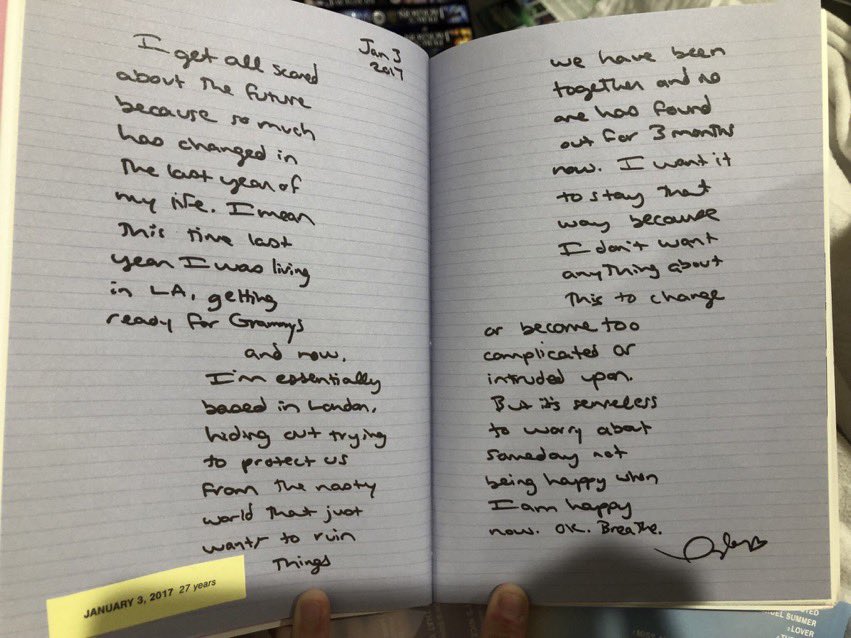 Jan 3
2017
I get all scared
about the future
because so much
has changed in
the last year of
my life. I mean
This time last
year I was living
in LA, getting
ready for Grammys
and now,
I'm essentially
based in London,
hiding out trying
to protect us
from the nasty
world that just
wants to ruin
things
JANUARY 3, 2017 27 years
we have been
together and no
one has found
out for 3 months
now. I want it
to stay that
way because
I don't want
anything about
this to change
or become too
complicated or
intruded upon.
But it's senseless
to worry about
someday not
being happy when
I am happy
now. OK. Breathe.
SUMMER
LOVER